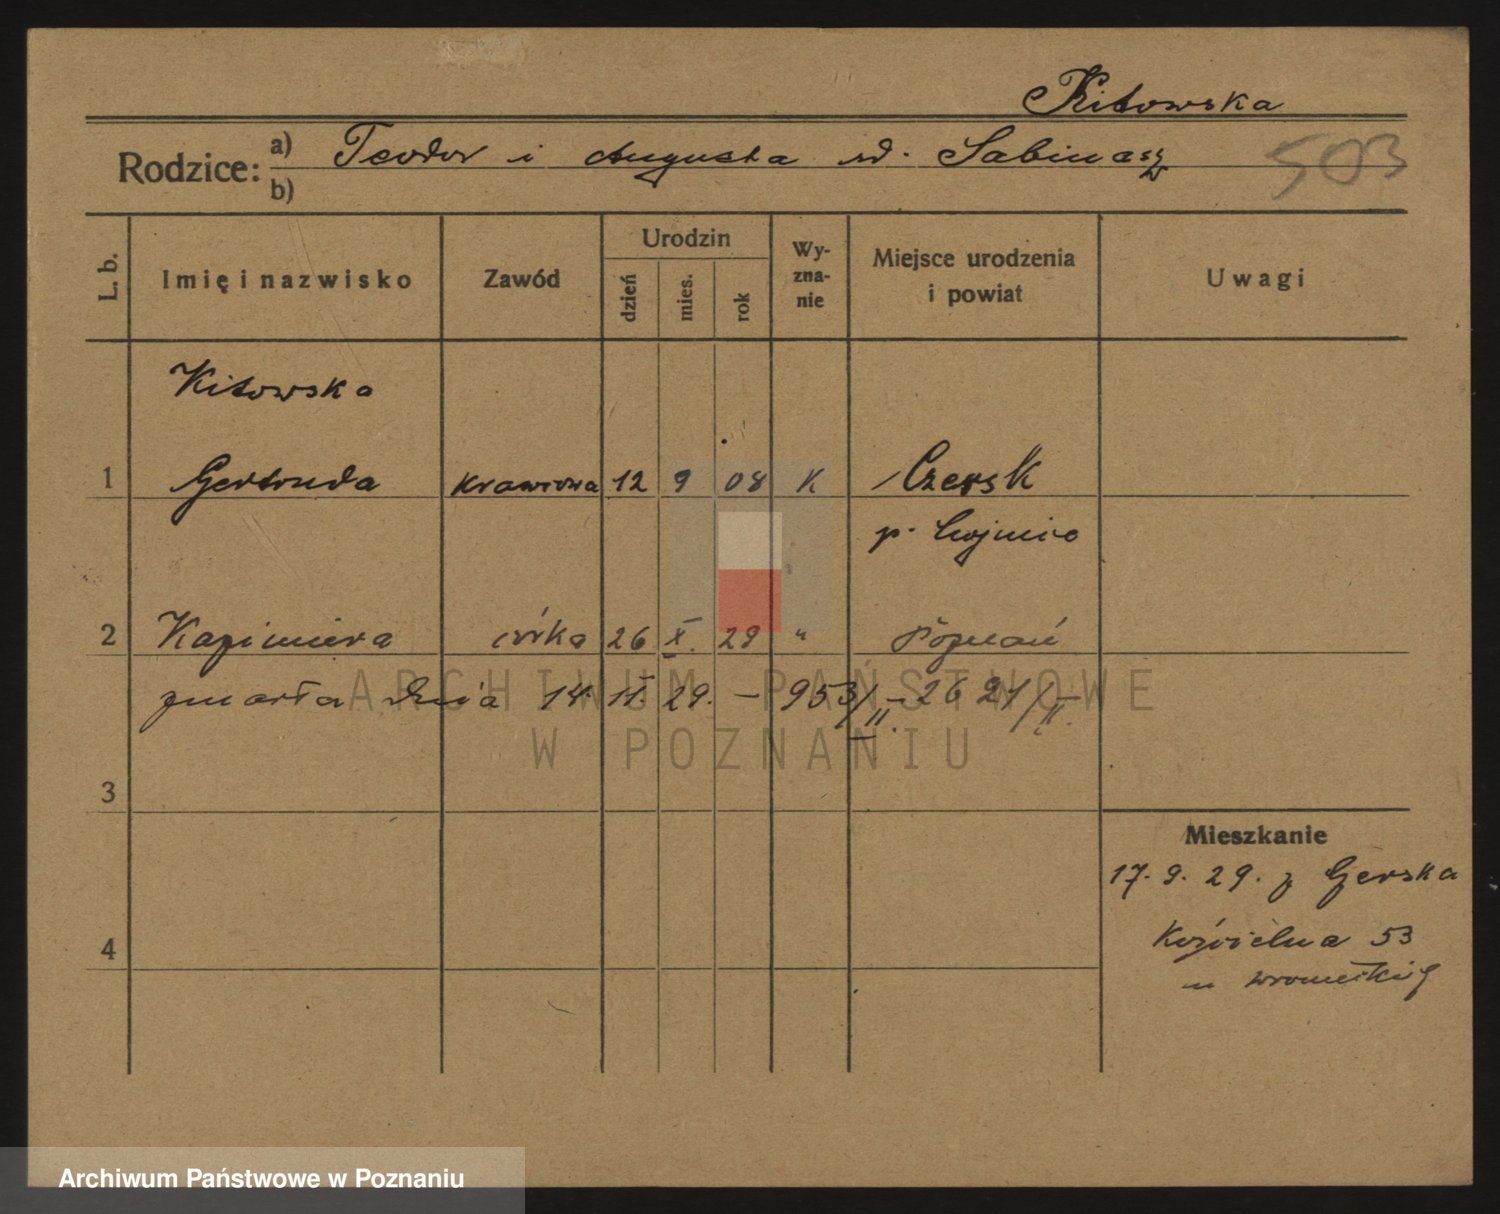 Kitowska
Rodzice: a) Teodor i Augusta
b)
503
L. b.
Imię i nazwisko
Zawód
Urodzin
dzień
mies.
rok
Wy-
zna-
nie
Miejsce urodzenia
i powiat
Uwagi
Kitowska
1 Gertruda krawcowa 12 9 08 K Czersk
p. Chojnice
2 Kazimiera córka 26 X. 29 " Poznań
zmarła dnia 14. 11. 29. – 953/II.
ARCHIWUM PAŃSTWOWE
W POZNANIU
3
Mieszkanie
17. 9. 29. z
Kościelna 53
4
u
Archiwum Państwowe w Poznaniu